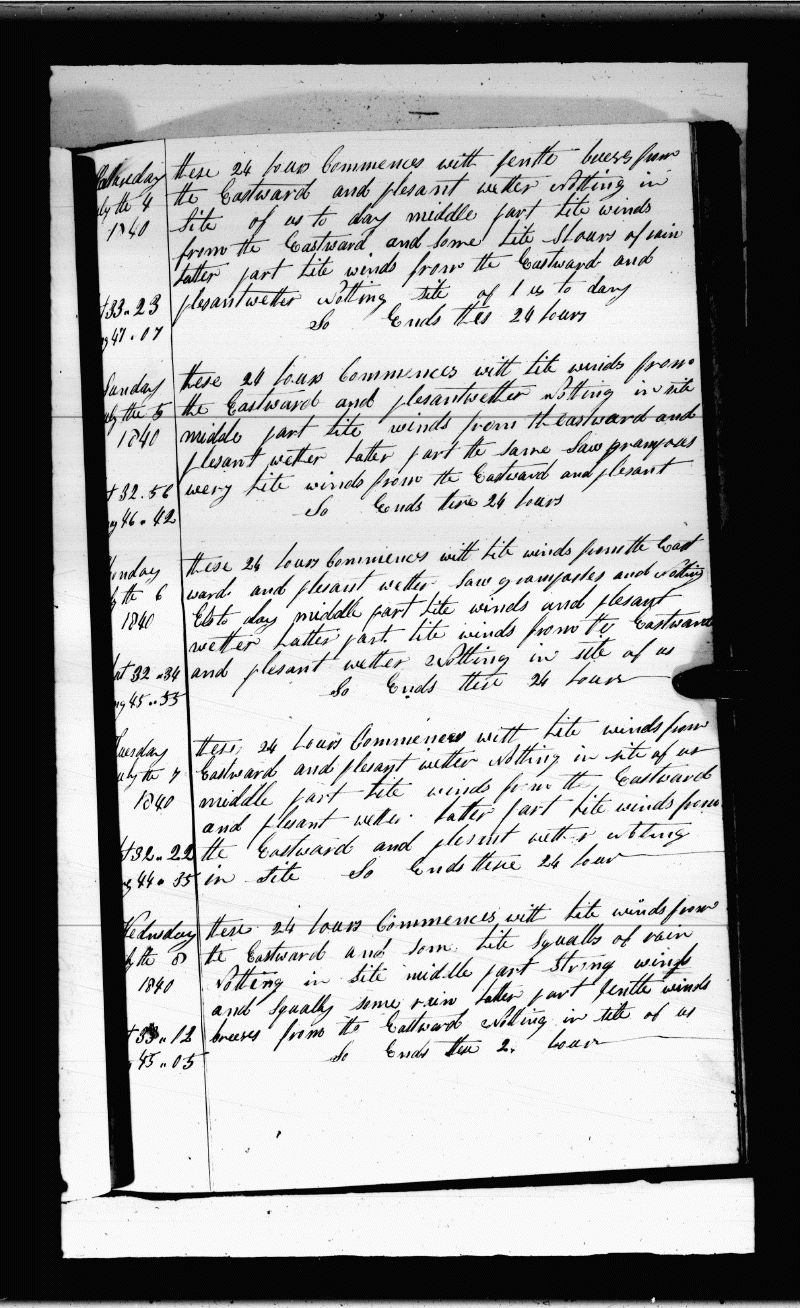 Saturday these 24 hours Commences with gentle breezes from
July the 4 the Eastward and plesant wetter Notting in
1840 Site of us to day middle part lite winds
from the Eastward and some lite Shours of rain
latter part lite winds from the Eastward and
33.23 plesant wetter Notting site of us to day
47.07 So Ends this 24 hours
Sunday these 24 hours Commences with lite winds from
July the 5 the Eastward and plesant wetter Notting in site
1840 middle part lite winds from th eastward and
plesant wetter latter part the same Saw grampous
32.56 wery lite winds from the Eastward and plesant
46.42 So Ends these 24 hours
Monday these 24 hours Commences with lite winds from the East
July the 6 ward and plesant wetter Saw gramposes and Notting
1840 Els to day middle part lite winds and plesant
wetter Latter part lite winds from the Eastward
Lat 32.34 and plesant wetter Notting in site of us
45.55 So Ends these 24 hours
Tuesday these 24 hours Commences with lite winds from
July the 7 Eastward and plesant wetter Notting in site of us
1840 middle part lite winds from the Eastward
and plesant wetter latter part lite winds from
32.22 the Eastward and plesant wetter Notting
44.35 in site So Ends these 24 hour
Wednsday these 24 hours Commences with lite winds from
July the 8 the Eastward and som lite Squalls of rain
1840 Notting in site middle part Strong winds
and Squally some rain latter part gentle winds
33.12 breezes from the Eastward Notting in site of us
45.05 So Ends these 2 hours